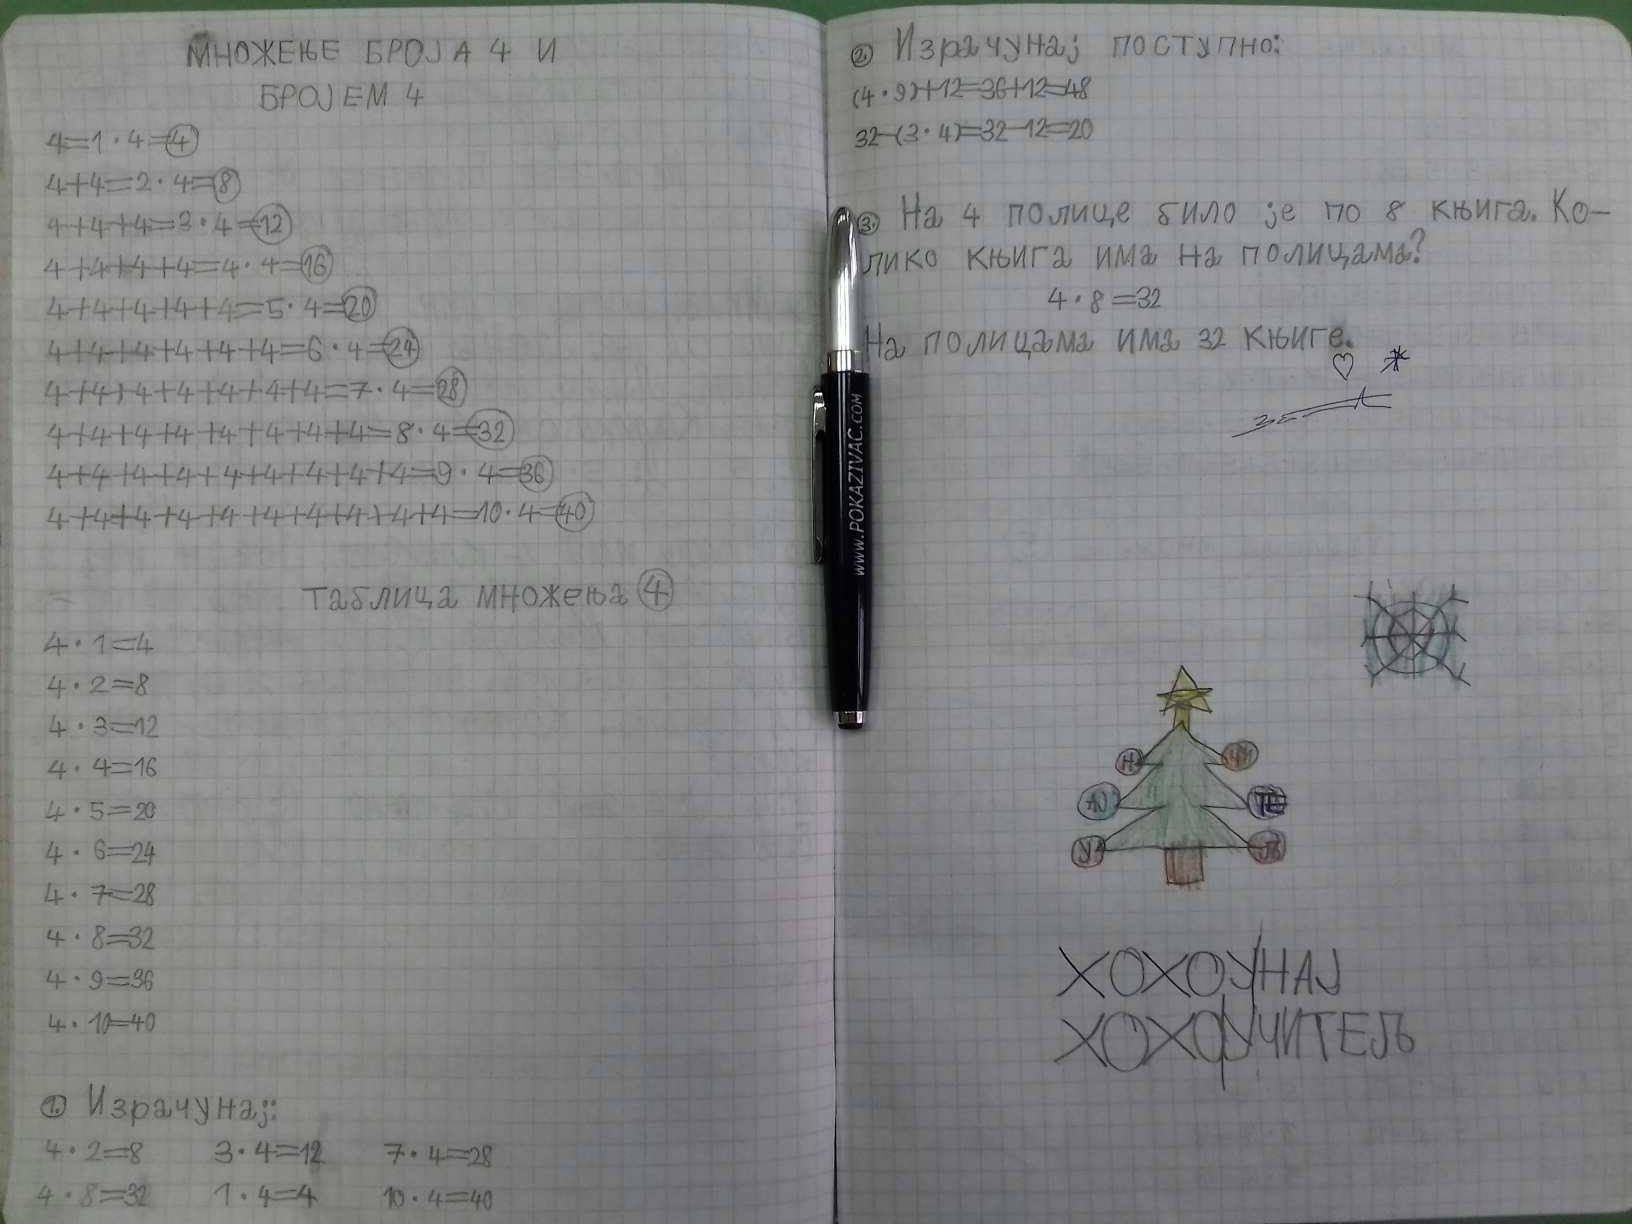 МНОЖЕЊЕ БРОЈА 4 И
БРОЈЕМ 4
4=1·4=4
4+4=2·4=8
4+4+4=3·4=12
4+4+4+4=4·4=16
4+4+4+4+4=5·4=20
4+4+4+4+4+4=6·4=24
4+4+4+4+4+4+4=7·4=28
4+4+4+4+4+4+4+4=8·4=32
4+4+4+4+4+4+4+4+4=9·4=36
4+4+4+4+4+4+4+4+4+4=10·4=40
Таблица множења 4
4·1=4
4·2=8
4·3=12
4·4=16
4·5=20
4·6=24
4·7=28
4·8=32
4·9=36
4·10=40
1. Израчунај:
4·2=8 3·4=12 7·4=28
4·8=32 1·4=4 10·4=40
2. Израчунај поступно:
(4·9)+12=36+12=48
32-(3·4)=32-12=20
3. На 4 полице било је по 8 књига. Ко-
лико књига има на полицама?
4·8=32
На полицама има 32 књиге.
www.POKAZIVAC.com
Н ЧИ
АЈ ТЕ
У Љ
ХОХОУНАЈ
ХОХОУЧИТЕЉ